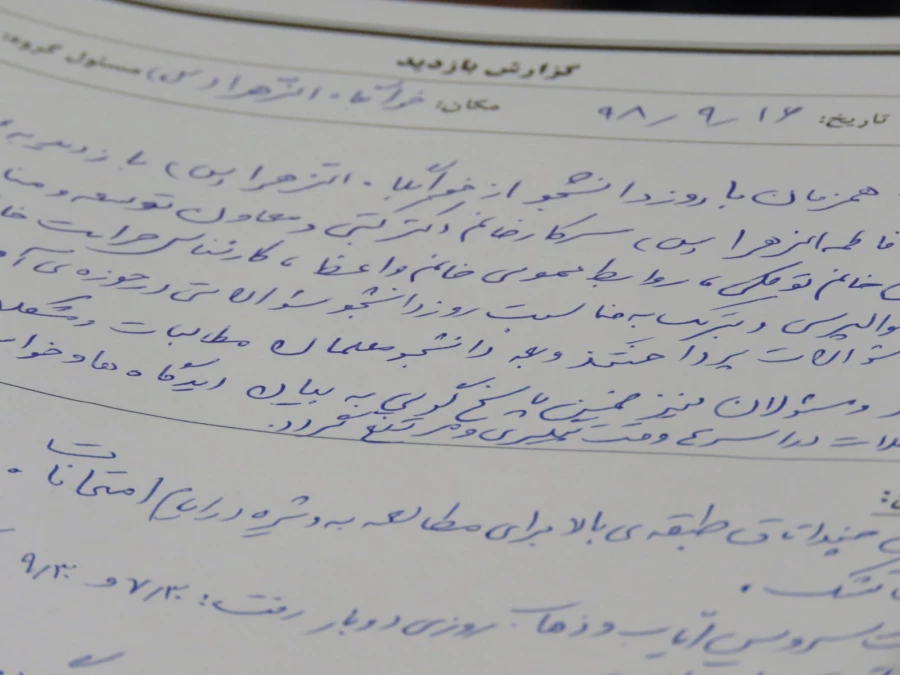 گزارش بازدید
تاریخ: ۹۸/۹/۱۶ مکان: خوابگاه الزهرا (س) مسئول گروه:
همزمان با روز دانشجو از خوابگاه الزهرا (س) بازدید به
فاطمه الزهرا (س)، سرکار خانم دکتر و معاون توسعه و
خانم توکلی، روابط عمومی خانم واعظ، کارشناس حراست
احوالپرسی و تبریک به مناسبت روز دانشجو سؤالاتی در حوزه‌ی
سؤالات پرداختند و به دانشجو معلمان مطالبات و مشکلات
و مسئولان نیز ضمن پاسخ گویی به بیان دیدگاه ها و
در اسرع وقت پیگیری و مرتفع گردد.
چند اتاق طبقه‌ی بالا برای مطالعه به ویژه در ایام امتحانات.
تشک.
سرویس ایاب و ذهاب روزی دوبار رفت: ۷/۳۰ و ۹/۳۰